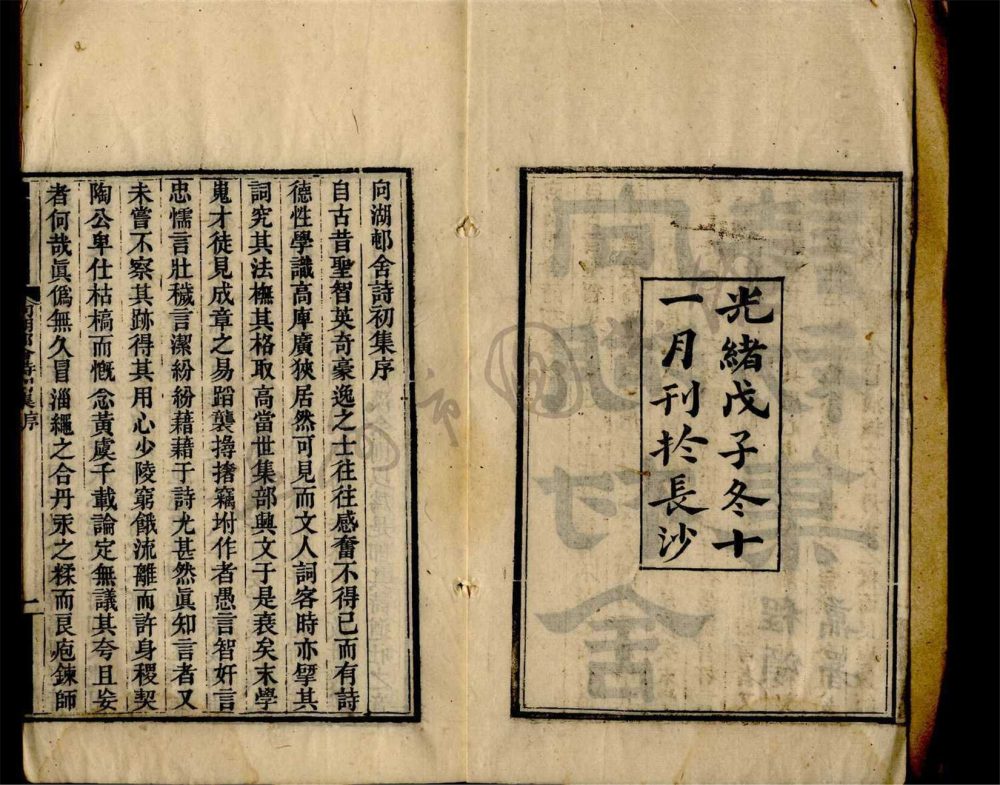 光緒戊子冬十
一月刊於長沙
向湖邨舍詩初集序
自古昔聖智英奇豪逸之士往往感奮不得已而有詩
德性學識高庳廣狹居然可見而文人詞客時亦擥其
詞究其法橅其格取高當世集部興文于是衰矣末學
嵬才徒見成章之易蹈襲撏撦竊坿作者愚言智奸言
忠懦言壯穢言潔紛紛藉藉于詩尤甚然眞知言者又
未嘗不察其跡得其用心少陵窮餓流離而許身稷契
陶公卑仕枯槁而慨念黃虞千載論定無議其夸且妄
者何哉眞僞無久冒淄繩之合丹汞之糅而良庖鍊師